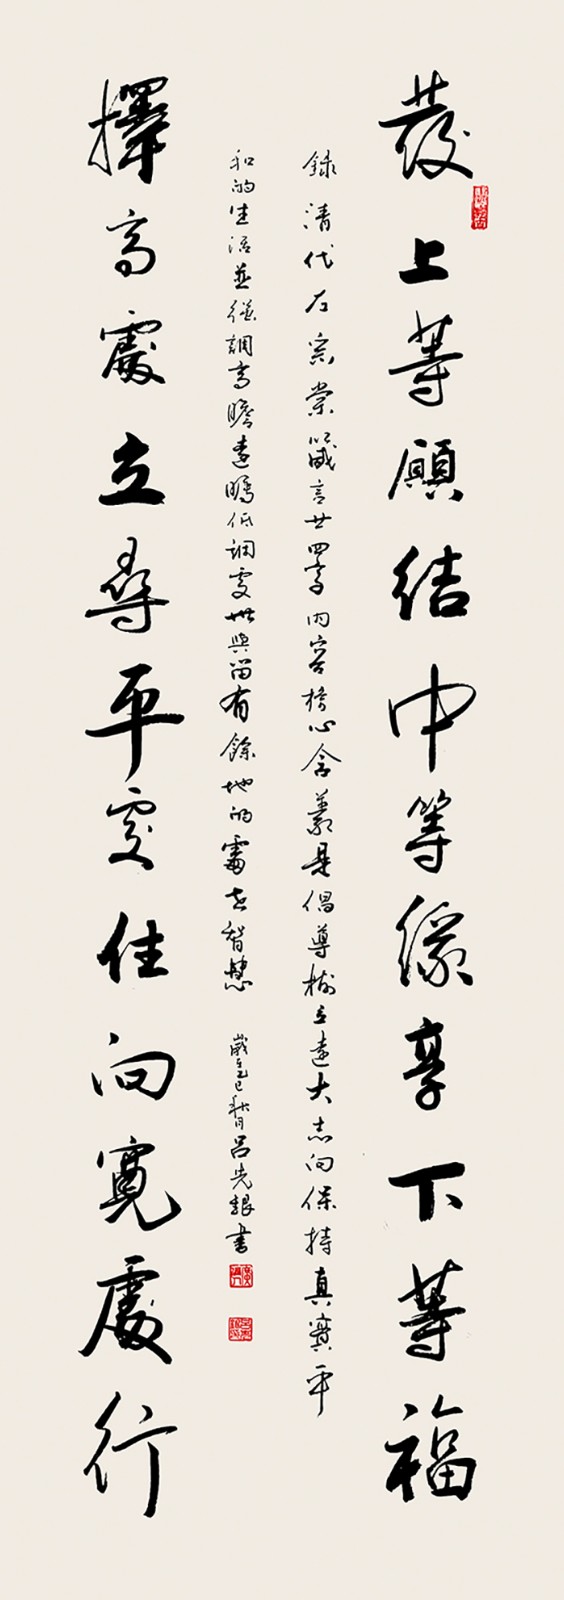 發上等願結中等緣享下等福
錄清代左宗棠箴言廿四字内容核心含義是倡導樹立遠大志向保持真實平
和的生活並強調高瞻遠矚低調處世與留有餘地的處世智慧 歲在乙巳秋月呂先銀書
擇高處立尋平處住向寬處行